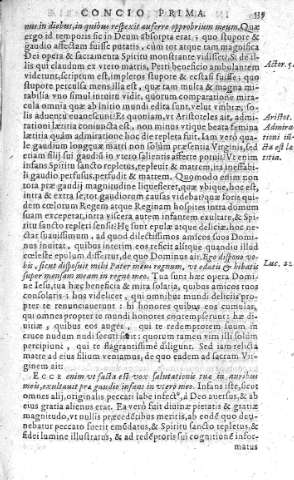 CONCIO PRIMA. 539
mini in diebus, in quibus respexit auferre opprobrium meum. Quæ
ergo id temporis sic in Deum absorpta erat, quo stupore &
gaudio affectam fuisse putatis, cùm tot atque tam magnifica
Dei opera & sacramenta Spiritu monstrante vidisset, & de il-
lis quæ clausum ex vtero matris, Patri beneficio ambulantem
viderunt, scriptum est, impletos stupore & ecstasi fuisse: quo
stupore percussa mens illa est, quæ tam multa & magna mi-
rabilia vno simul intuitu vidit, quorum comparatione mira-
cula omnia quæ ab initio mundi edita sunt, velut vmbræ, so-
lis aduentu euanescunt? Et quoniam, vt Aristoteles ait, admi-
rationi lætitia coniuncta est, non minus vtique beata femina
lætitia quàm admiratione hoc die repleta fuit. Iam verò qua-
le gaudium longæuæ matri non solùm præsentia Virginis, sed
etiam filij sui gaudia in vtero salientis afferre potuit? Vt enim
infans Spiritu sancto repletus, repleuit & matrem, ita ineffabi-
li gaudio perfusus, perfudit & matrem. Quomodo enim con-
tota præ gaudij magnitudine liquesceret, quæ vbique, hoc est,
intra & extra se, tot gaudiorum causas videbat? quæ foris qui-
dem cœlorum Regem atque Reginam hospites intra domum
suam exceperat, intra viscera autem infantem exultare, & Spi-
ritu sancto repleri sensit? Hę sunt epulæ atque deliciæ, hoc ne-
ctar suauissimum, ad quod dilectissimos amicos suos Domi-
nus inuitat, quibus interim eos reficit alitque quandiu illud
cœleste epulum differtur, de quo Dominus ait. Ego dispono vo-
bis, sicut disposuit mihi Pater meus regnum, vt edatis & bibatis
super mensam meam in regno meo. Tua sunt hæc opera Domi-
ne Iesu, tua hæc beneficia & mira solaria, quibus amicos tuos
consolaris: hos videlicet, qui omnibus mundi delicijs pro-
pter te renunciauerunt: hi honores quibus eos cumulas,
qui omnes propter te mundi honores contempserunt: hæ di-
uitiæ, quibus eos auges, qui te redemptorem suum in
cruce nudum nudi sectati sunt: quorum tamen vim illi solùm
percipiunt, qui te flagrantissimè diligunt. Sed iam relicta
matre ad eius filium veniamus, de quo eadem ad sacram Vir-
ginem ait:
ECCE enim vt facta est vox salutationis tuæ in auribus
meis, exultauit præ gaudio infans in vtero meo. Infans iste, sicut
omnes alij, originalis peccati labe infectꝰ, à Deo auersus, & ab
eius gratia alienus erat. Ea verò fuit diuinæ pietatis & gratiæ
magnitudo, vt nullis præcedentibus meritis, ab eodē quo de-
nebatur peccato fuerit emūdatus, & Spiritu sancto repletus, &
fidei lumine illustratus, & ad redēptoris sui cognitionē infor-
matus
Actor. 3.
Aristot.
Admira-
tioni iū-
cta est læ-
titia.
Luc. 22